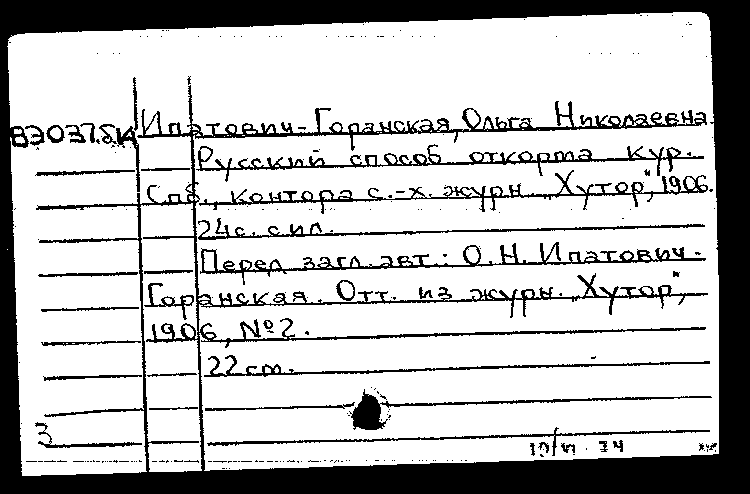 Ипатович-Горанская, Ольга Николаевна
Русский способ откорма кур.
Спб., контора с.-х. журн. "Хутор", 1906.
24с. с ил.
Перед загл. авт.: О.Н. Ипатович-
Горанская. Отт. из журн. "Хутор",
1906, №2.
22 см.
3